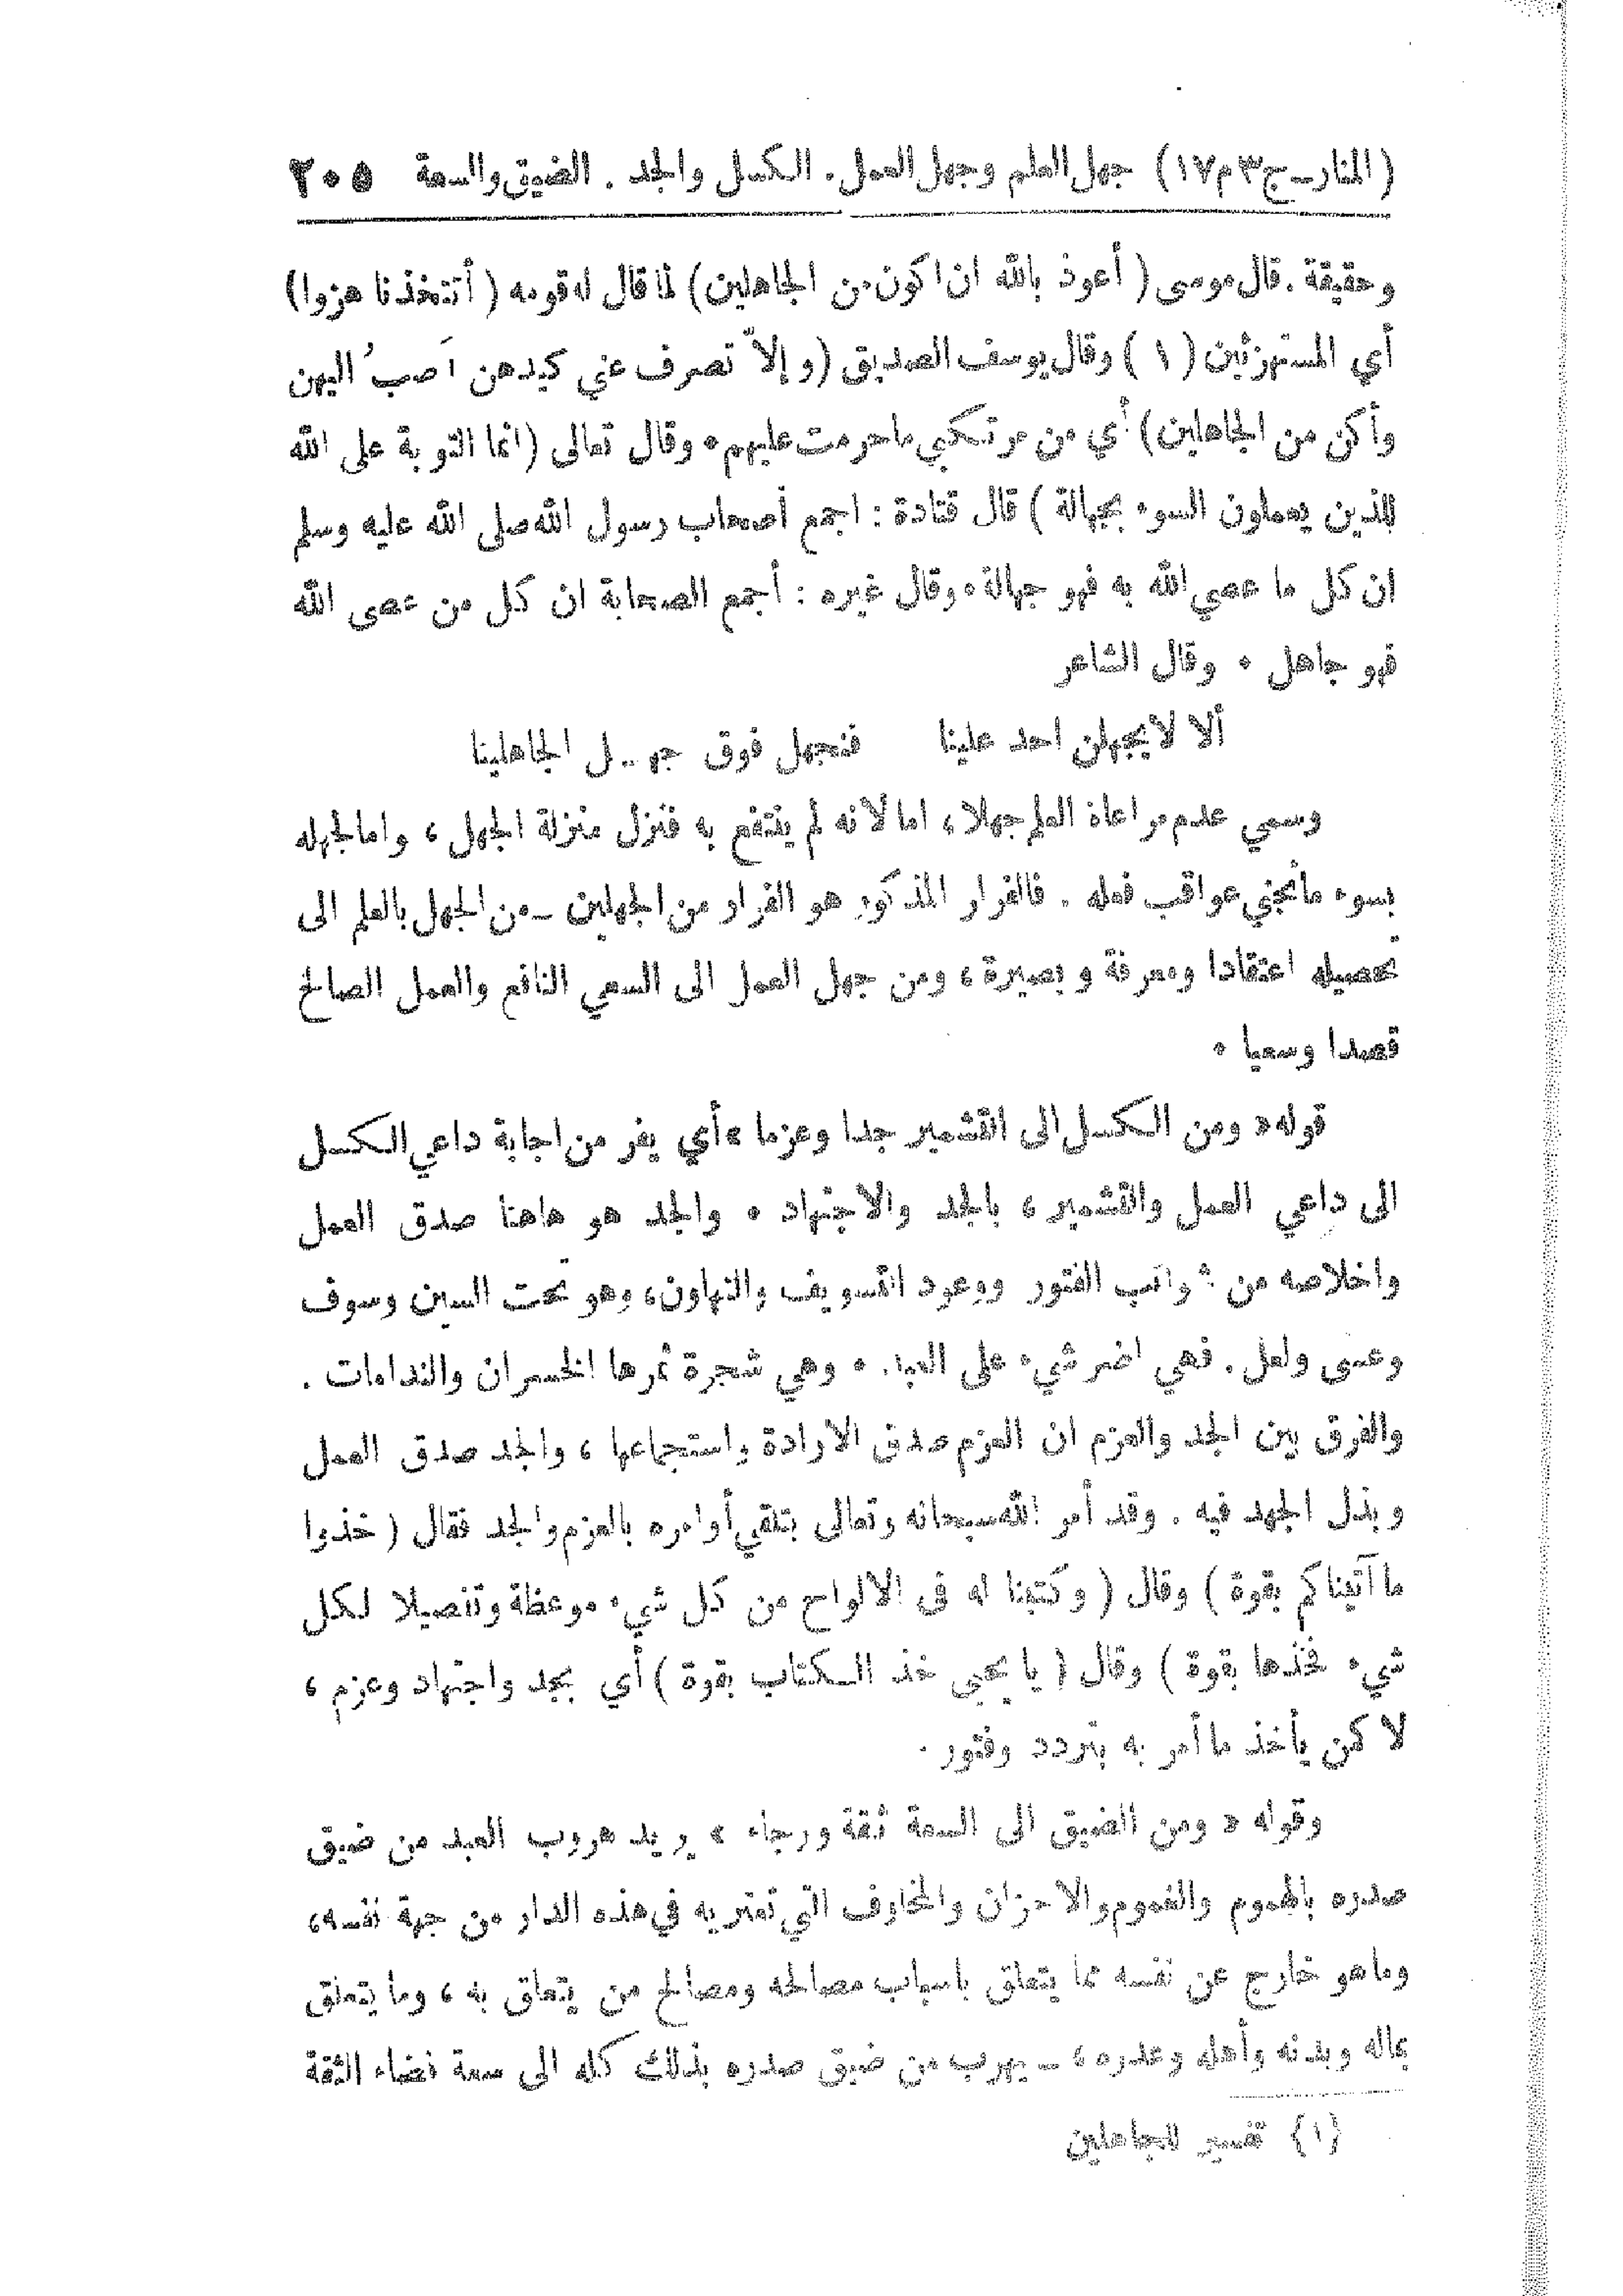 (المنار–ج٣م١٧) جهل العلم وجهل العمل. الكسل والجد. الضيق والسعة ٢٠٥
وحقيقة. قال موسى (أعوذ بالله ان اكون من الجاهلين) لما قال له قومه (أتتخذنا هزوا)
أي المستهزئين (١) وقال يوسف الصديق (وإلاّ تصرف عني كيدهن اَصبُ اليهن
وأكن من الجاهلين) أي من مرتكبي ما حرمت عليهم. وقال تعالى (انما التوبة على الله
للذين يعملون السوء بجهالة) قال قتادة: اجمع أصحاب رسول الله صلى الله عليه وسلم
ان كل ما عصي الله به فهو جهالة. وقال غيره: أجمع الصحابة ان كل من عصى الله
فهو جاهل. وقال الشاعر
ألا لا يجهلن احد علينا فنجهل فوق جهل الجاهلينا
وسمي عدم مراعاة العلم جهلا، اما لانه لم ينتفع به فنزل منزلة الجهل، واما لجهله
بسوء ما تجني عواقب فعله. فالفرار المذكور هو الفرار من الجهلين –من الجهل بالعلم الى
تحصيله اعتقادا ومعرفة وبصيرة، ومن جهل العمل الى السعي النافع والعمل الصالح
قصدا وسعيا.
قوله «ومن الكسل الى التشمير جدا وعزما» أي يفر من اجابة داعي الكسل
الى داعي العمل والتشمير، بالجد والاجتهاد. والجد هو هاهنا صدق العمل
واخلاصه من شوائب الفتور ووعود التسويف والتهاون، وهو تحت السين وسوف
وعسى ولعل. فهي اضر شيء على العبد. وهي شجرة ثمرها الخسران والندامات.
والفرق بين الجد والعزم ان العزم صدق الارادة واستجماعها، والجد صدق العمل
وبذل الجهد فيه. وقد أمر الله سبحانه وتعالى بتلقي أوامره بالعزم والجد فقال (خذوا
ما آتيناكم بقوة) وقال (وكتبنا له في الالواح من كل شيء موعظة وتفصيلا لكل
شيء فخذها بقوة) وقال (يا يحيى خذ الكتاب بقوة) أي بجد واجتهاد وعزم،
لا كمن يأخذ ما أمر به بتردد وفتور.
وقوله «ومن الضيق الى السعة ثقة ورجاء» يريد هروب العبد من ضيق
صدره بالهموم والغموم والاحزان والمخاوف التي تعتريه في هذه الدار من جهة نفسه،
وما هو خارج عن نفسه مما يتعلق باسباب مصالحه ومصالح من يتعلق به، وما يتعلق
بماله وبدنه وأهله وعدوه، –يهرب من ضيق صدره بذلك كله الى سعة فضاء الثقة
(١) تفسير للجاهلين